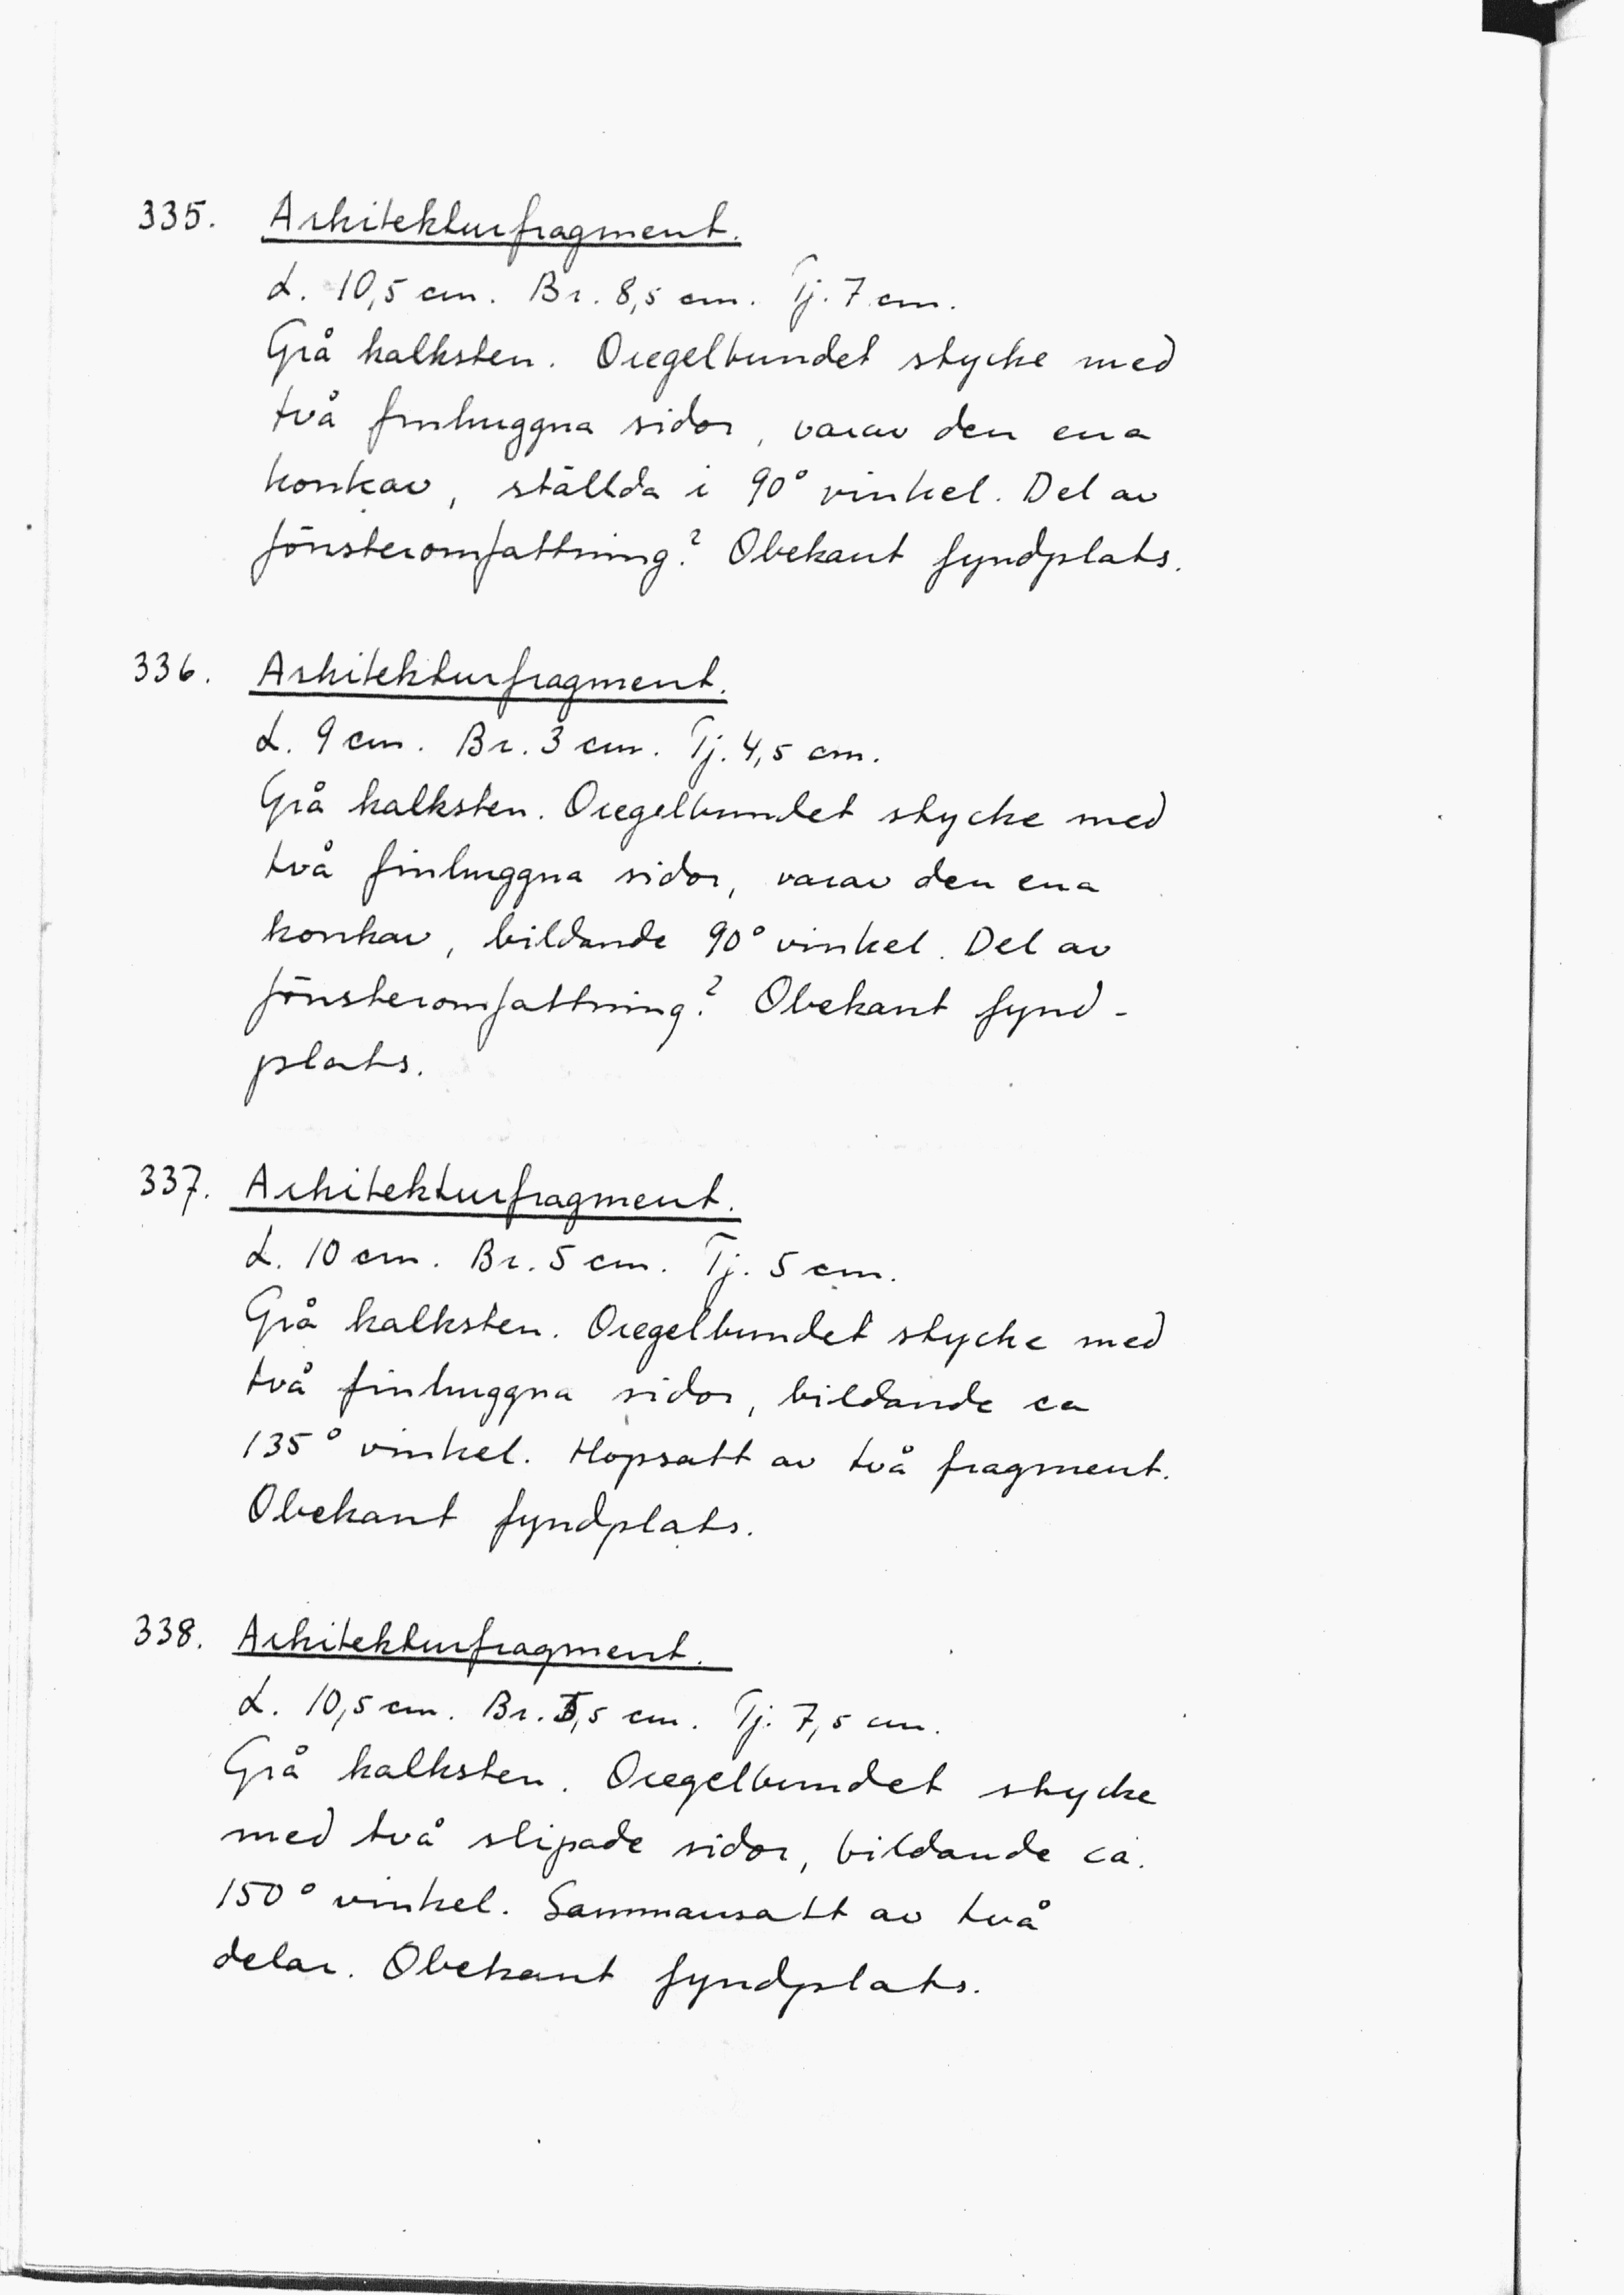 335. Arkitekturfragment.
L. 10,5 cm. Br. 8,5 cm. Tj. 7 cm.
Grå kalksten. Oregelbundet stycke med
två finhuggna sidor, varav den ena
konkav, ställda i 90° vinkel. Del av
fönsteromfattning? Obekant fyndplats.
336. Arkitekturfragment.
L. 9 cm. Br. 3 cm. Tj. 4,5 cm.
Grå kalksten. Oregelbundet stycke med
två finhuggna sidor, varav den ena
konkav, bildande 90° vinkel. Del av
fönsteromfattning? Obekant fynd-
plats.
337. Arkitekturfragment.
L. 10 cm. Br. 5 cm. Tj. 5 cm.
Grå kalksten. Oregelbundet stycke med
två finhuggna sidor, bildande ca
135° vinkel. Hopsatt av två fragment.
Obekant fyndplats.
338. Arkitekturfragment.
L. 10,5 cm. Br. 5,5 cm. Tj. 7,5 cm.
Grå kalksten. Oregelbundet stycke
med två slipade sidor, bildande ca.
150° vinkel. Sammansatt av två
delar. Obekant fyndplats.